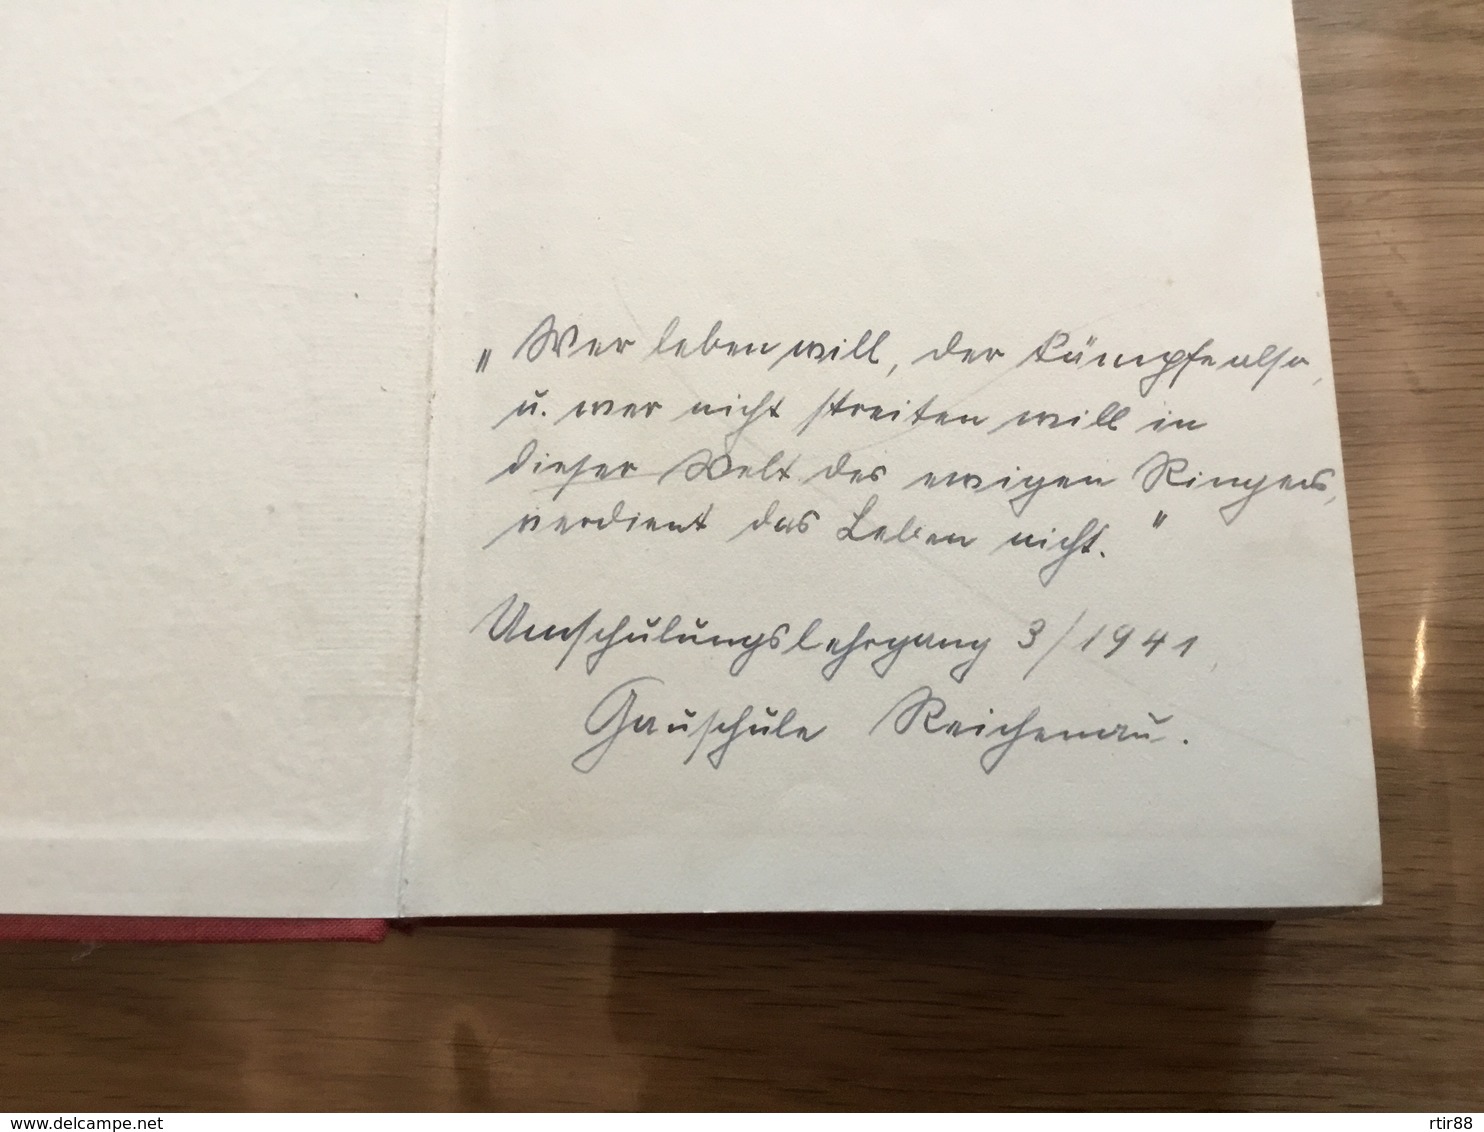 „Wer leben will, der kämpfe also,
u. wer nicht streiten will in
dieser Welt des ewigen Ringens,
verdient das Leben nicht."
Umschulungslehrgang 3/1941
Gauschule Reichenau.
www.delcampe.net
rtir88